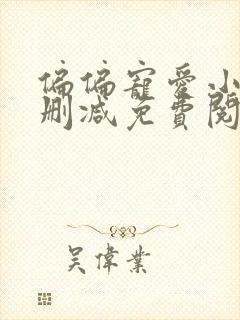 偏偏寵愛小
刪減免費閱
吳偉業